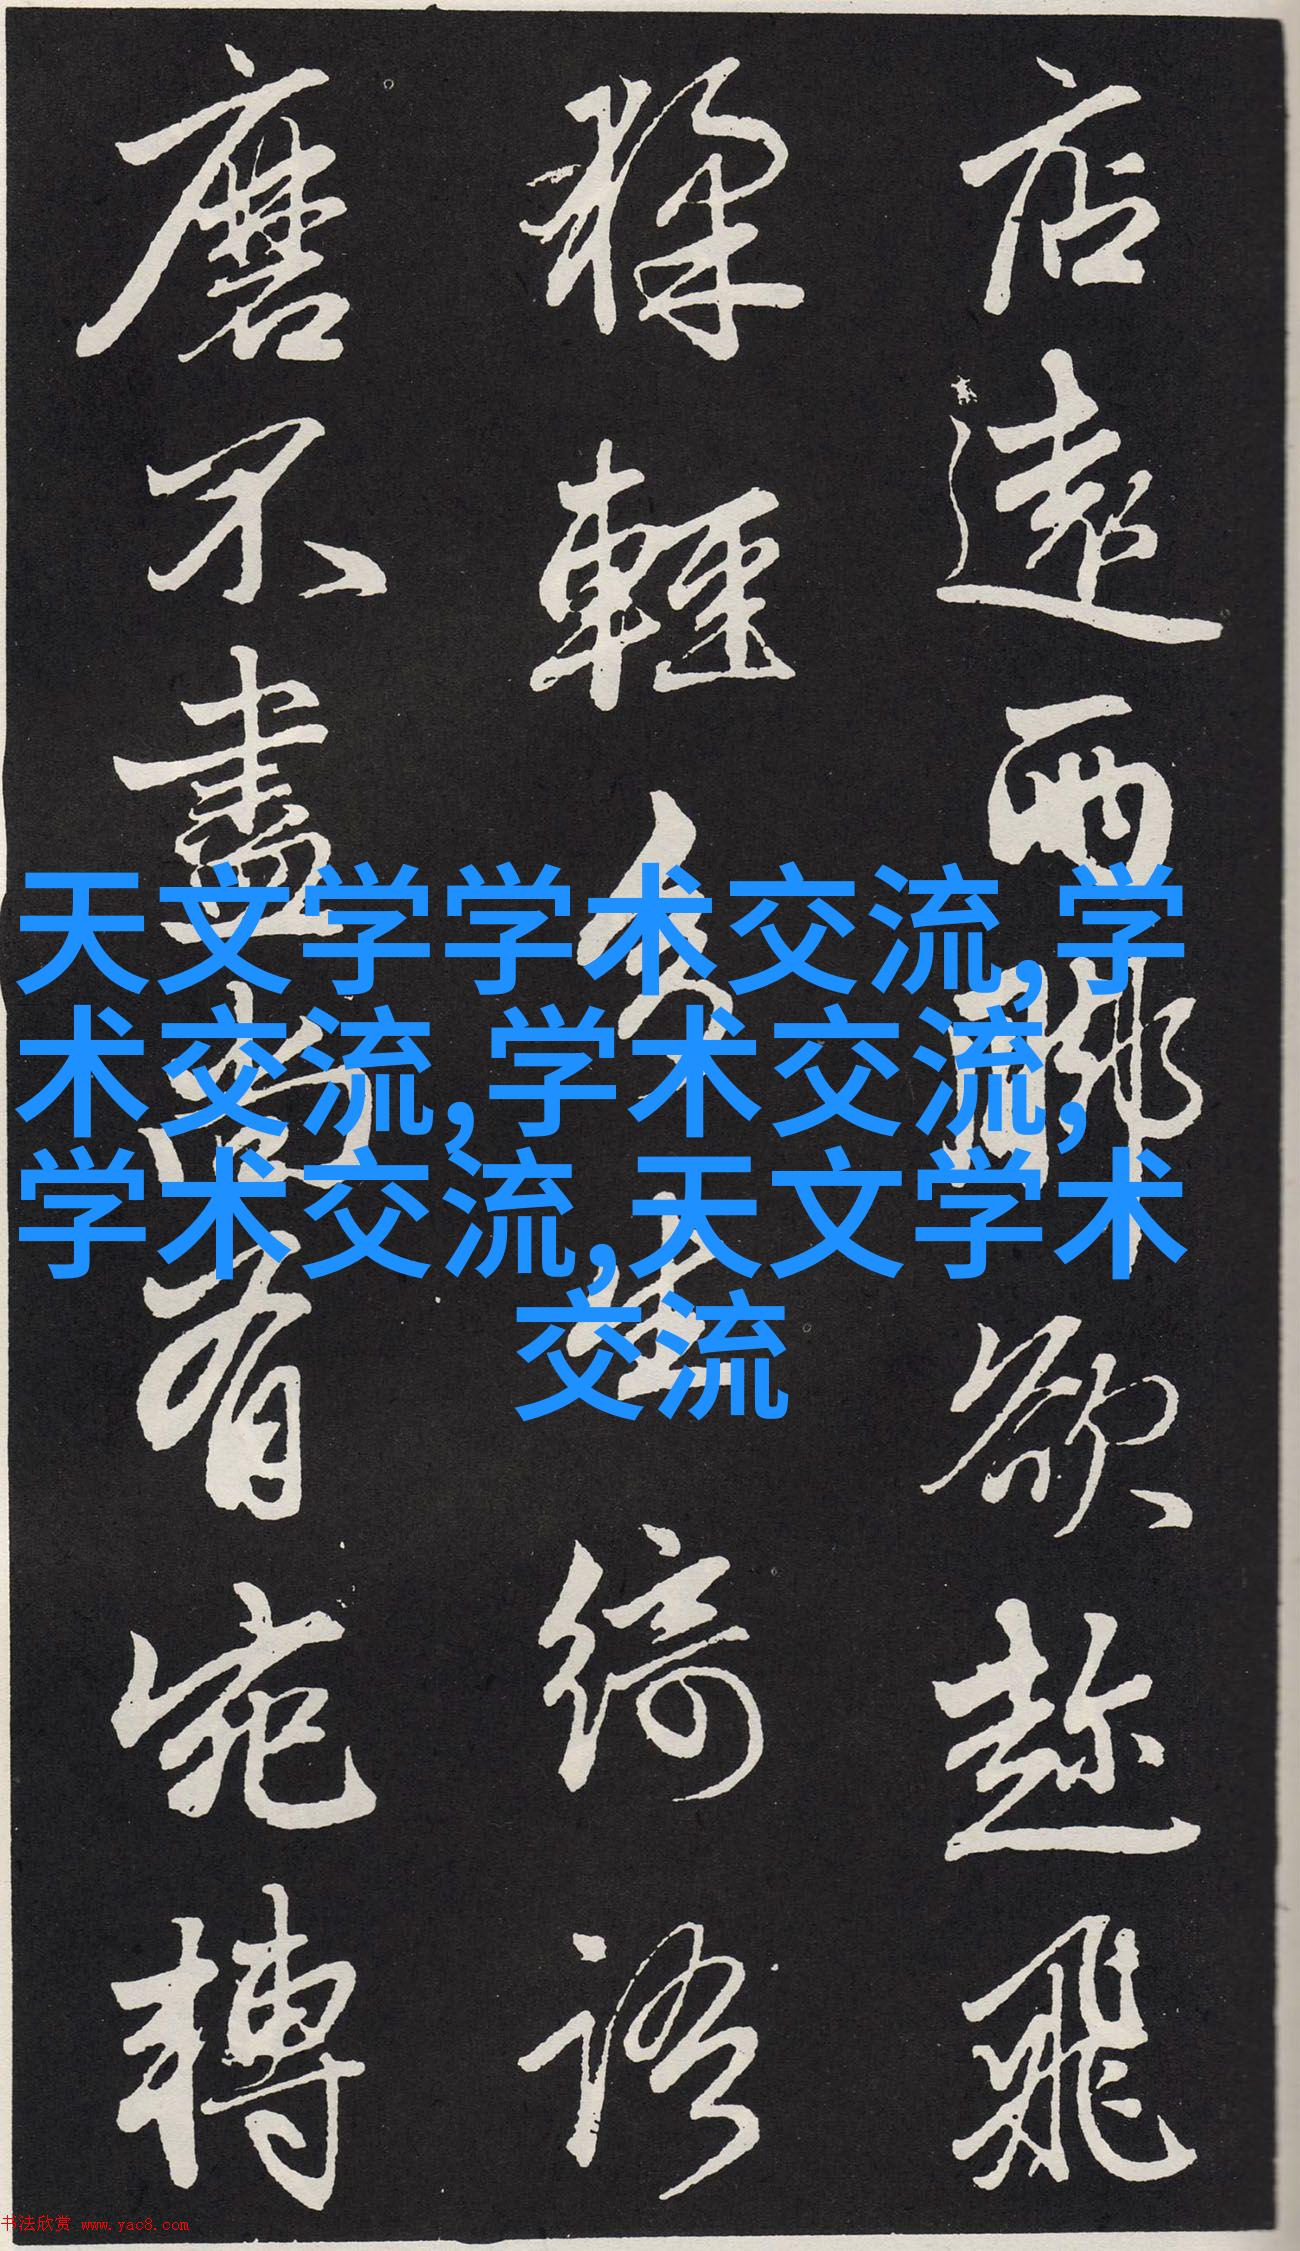 店遠西
欲趁飛
輕
綺語
磨不盡
有宛轉
天文学学术交流,学
术交流,学术交流,
学术交流,天文学术
交流
书法欣赏 www.yac8.com